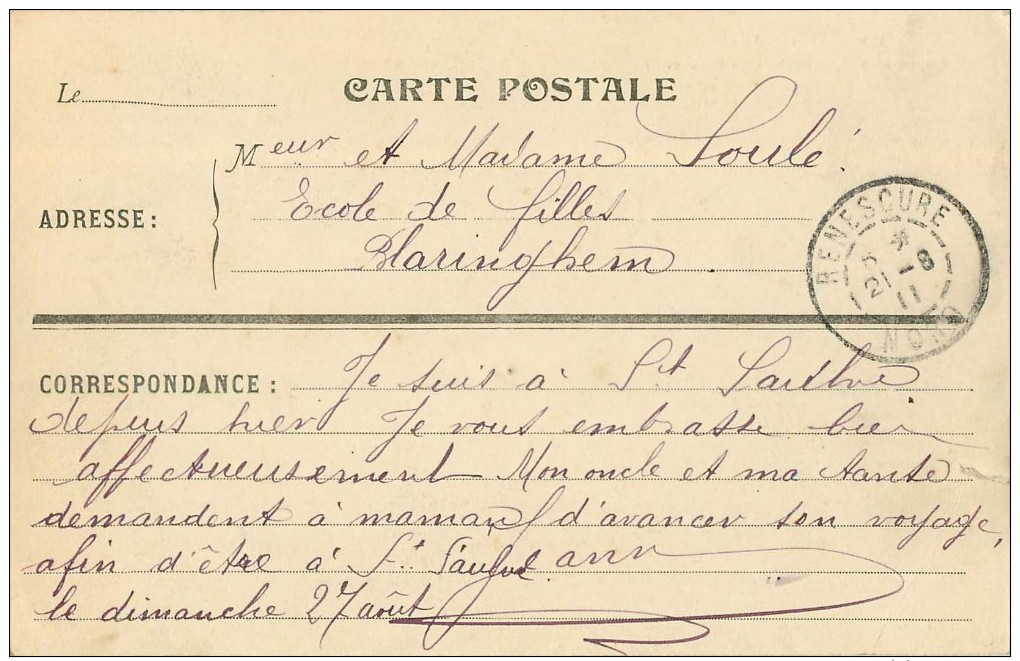 CARTE POSTALE
Le
Meur et Madame Loulé
ADRESSE :
Ecole de filles
Blaringhem
RENESCURE
21 -8
11
NORD
CORRESPONDANCE : Je suis à St
depuis hier Je vous embrasse bien
affectueusement Mon oncle et ma tante
demandent à maman d'avancer son voyage,
afin d'être à St
le dimanche 27 août